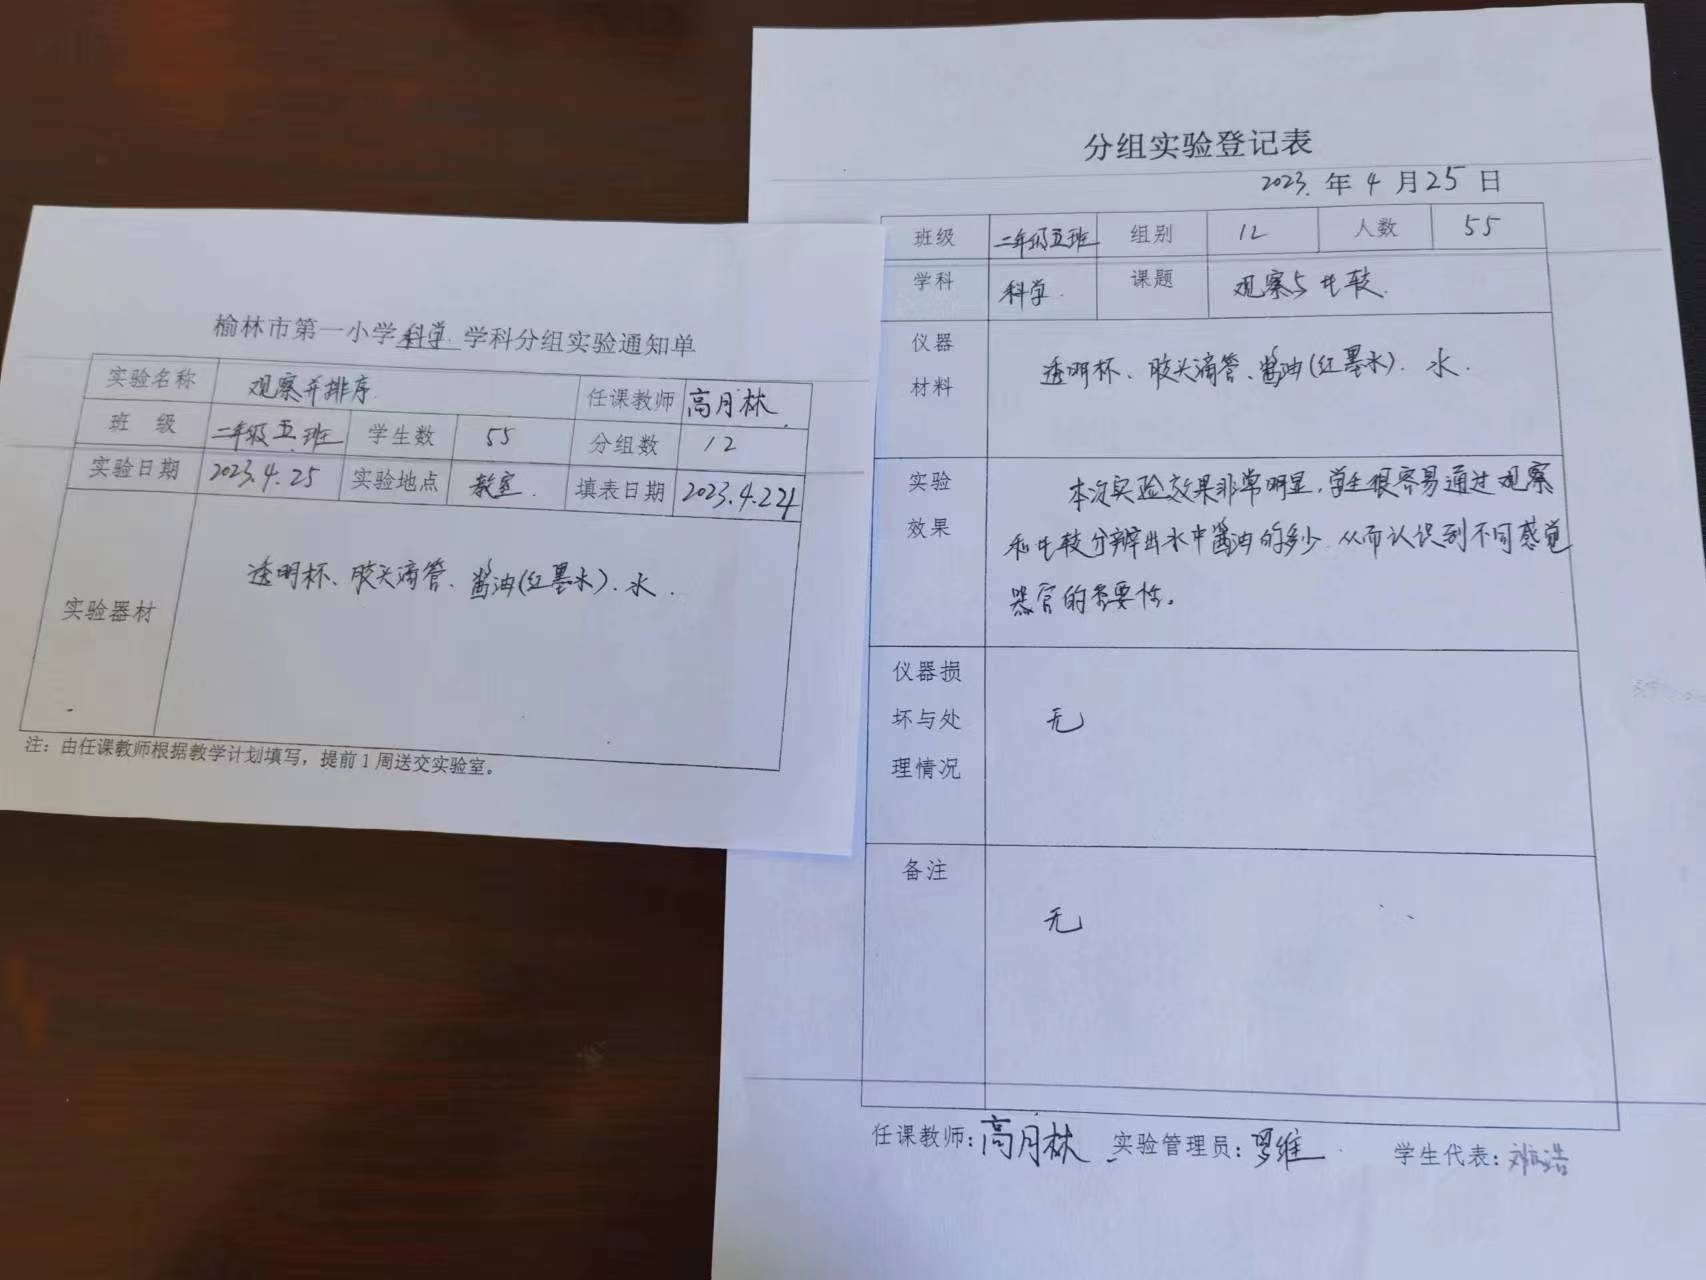 榆林市第一小学科学学科分组实验通知单
实验名称 观察并排序 任课教师 高月林
班 级 二年级五班 学生数 55 分组数 12
实验日期 2023.4.25 实验地点 教室. 填表日期 2023.4.221
实验器材 透明杯、胶头滴管、酱油(红墨水)、水.
注：由任课教师根据教学计划填写，提前1周送交实验室。
分组实验登记表
2023.年4月25日
班级 二年级五班 组别 12 人数 55
学科 科学. 课题 观察与比较.
仪器
材料
透明杯、胶头滴管、酱油(红墨水)、水.
实验
效果
本次实验效果非常明显,学生很容易通过观察
和比较分辨出水中酱油的多少.从而认识到不同感觉
器官的重要性。
仪器损
坏与处
理情况
无
备注
无
任课教师：高月林 实验管理员：罗维 学生代表：